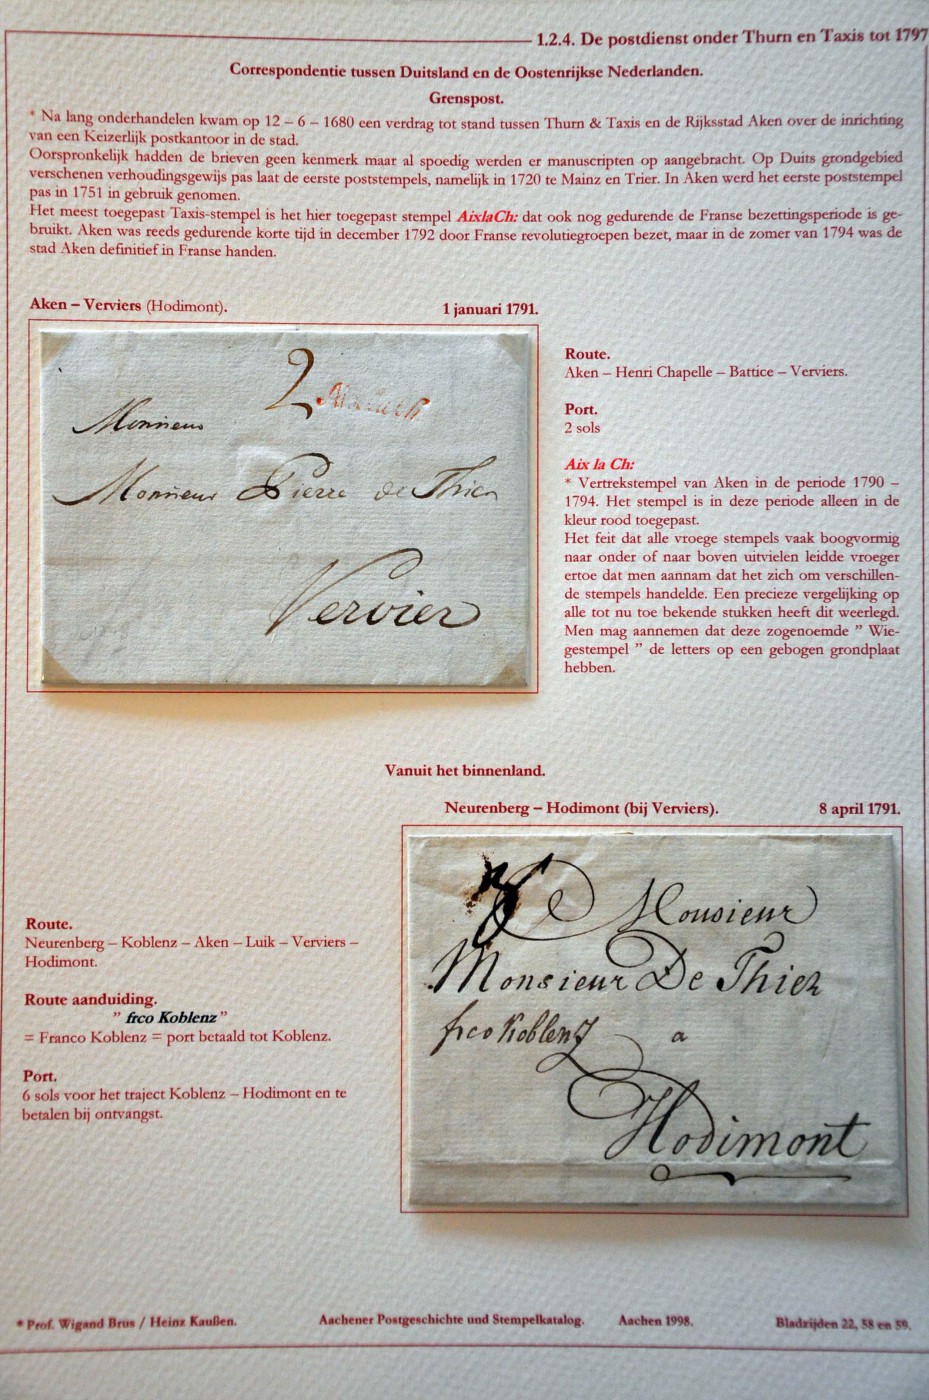 1.2.4. De postdienst onder Thurn en Taxis tot 1797
Correspondentie tussen Duitsland en de Oostenrijkse Nederlanden.
Grenspost.
* Na lang onderhandelen kwam op 12 – 6 – 1680 een verdrag tot stand tussen Thurn & Taxis en de Rijksstad Aken over de inrichting
van een Keizerlijk postkantoor in de stad.
Oorspronkelijk hadden de brieven geen kenmerk maar al spoedig werden er manuscripten op aangebracht. Op Duits grondgebied
verschenen verhoudingsgewijs pas laat de eerste poststempels, namelijk in 1720 te Mainz en Trier. In Aken werd het eerste poststempel
pas in 1751 in gebruik genomen.
Het meest toegepast Taxis-stempel is het hier toegepast stempel AixlaCh: dat ook nog gedurende de Franse bezettingsperiode is ge-
bruikt. Aken was reeds gedurende korte tijd in december 1792 door Franse revolutiegroepen bezet, maar in de zomer van 1794 was de
stad Aken definitief in Franse handen.
Aken – Verviers (Hodimont).
1 januari 1791.
2 AixlaCh
Monsieur
Monsieur Pierre de Thier
Vervier
Route.
Aken – Henri Chapelle – Battice – Verviers.
Port.
2 sols
Aix la Ch:
* Vertrekstempel van Aken in de periode 1790 –
1794. Het stempel is in deze periode alleen in de
kleur rood toegepast.
Het feit dat alle vroege stempels vaak boogvormig
naar onder of naar boven uitvielen leidde vroeger
ertoe dat men aannam dat het zich om verschillen-
de stempels handelde. Een precieze vergelijking op
alle tot nu toe bekende stukken heeft dit weerlegd.
Men mag aannemen dat deze zogenoemde ” Wie-
gestempel ” de letters op een gebogen grondplaat
hebben.
Vanuit het binnenland.
Neurenberg – Hodimont (bij Verviers).
8 april 1791.
Route.
Neurenberg – Koblenz – Aken – Luik – Verviers –
Hodimont.
Route aanduiding.
” frco Koblenz ”
= Franco Koblenz = port betaald tot Koblenz.
Port.
6 sols voor het traject Koblenz – Hodimont en te
betalen bij ontvangst.
Monsieur
Monsieur De Thier
frco Koblenz a
Hodimont
* Prof. Wigand Brus / Heinz Kaußen.
Aachener Postgeschichte und Stempelkatalog.
Aachen 1998.
Bladzijden 22, 58 en 59.